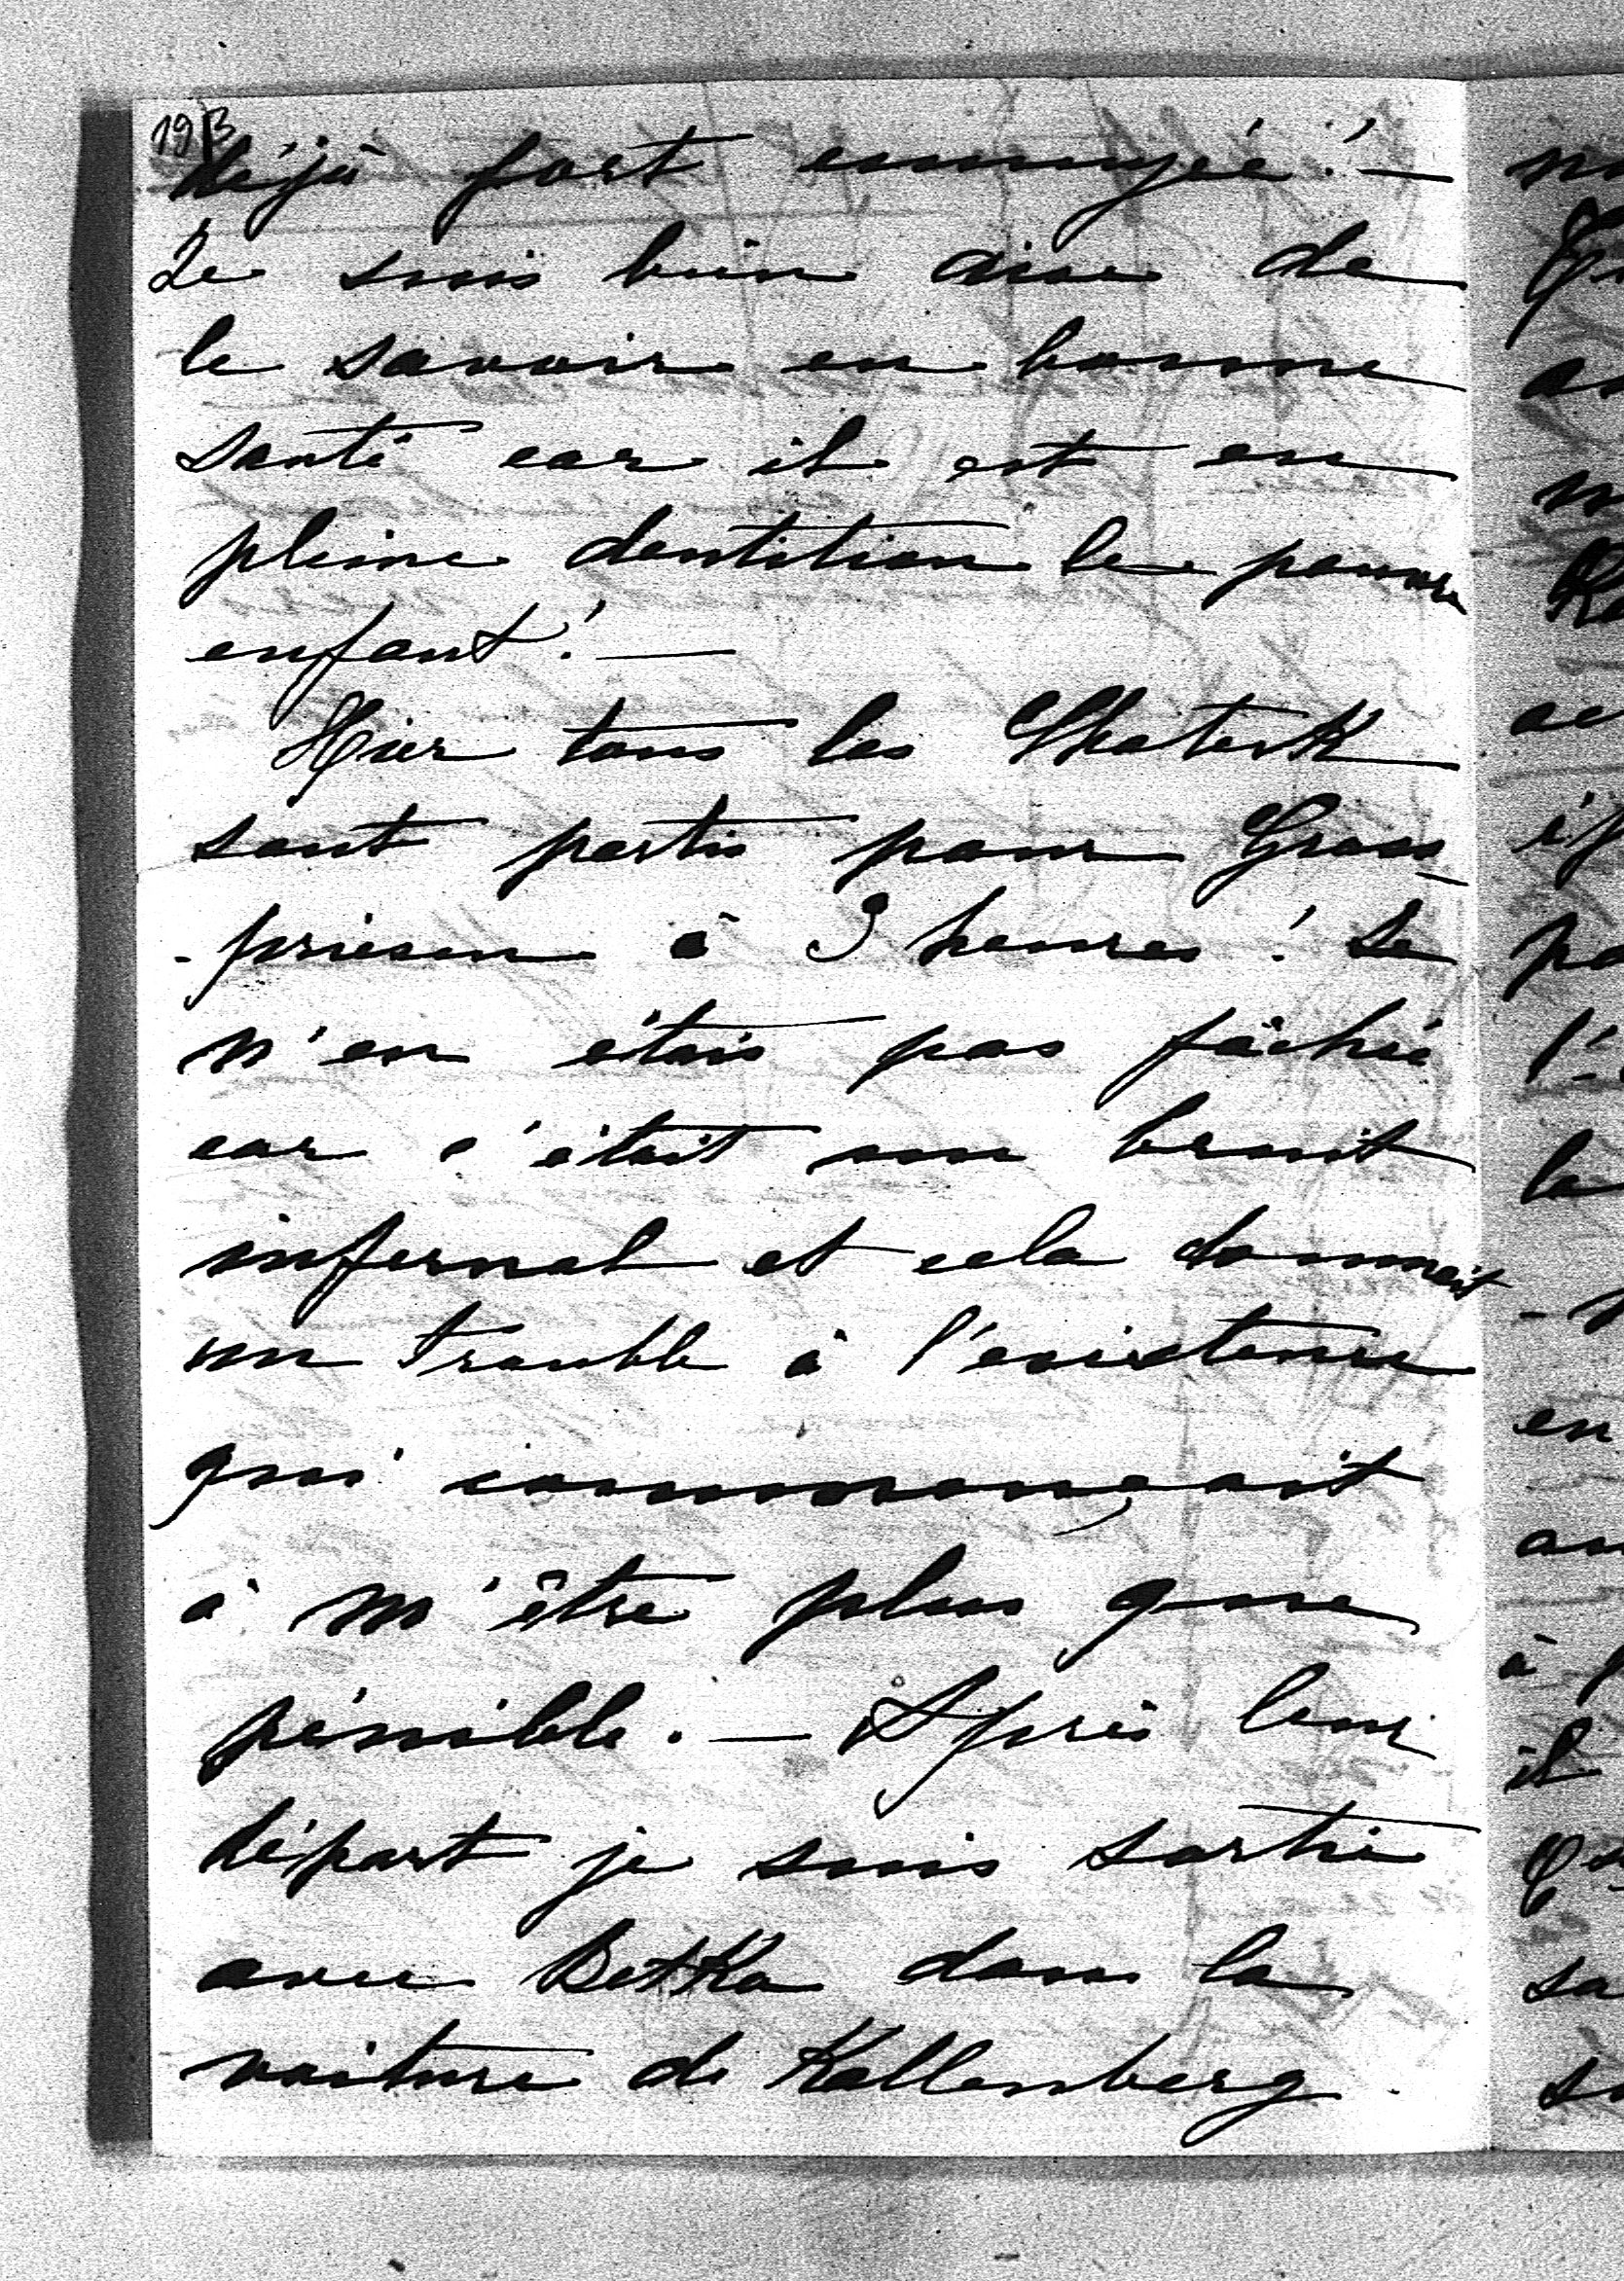 19 B
déjà fort ennuyée! —
Je suis bien aise de
le savoir en bonne
santé car il est en
pleine dentition le pauvre
enfant! —
Hier tous les Choteck
sont partis pour Gross
-priesen à 3 heures! Je
n'en étais pas fâchée
car c'était un bruit
infernal et cela donnait
un trouble à l'existence
qui commençait
à m'être plus que
pénible. — Après leur
départ je suis sortie
avec Betka dans la
voiture de Kallenberg